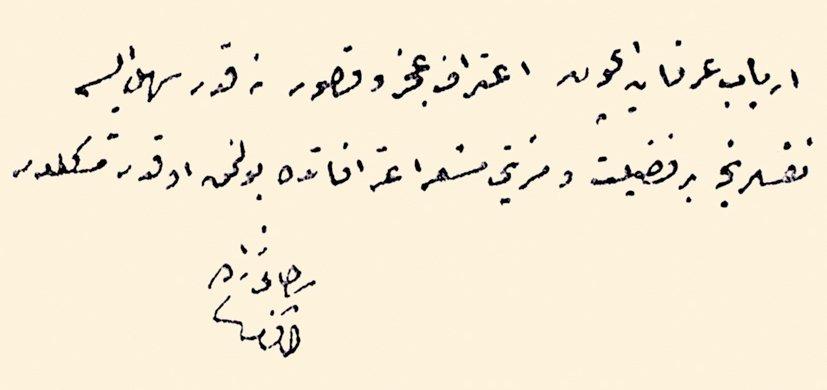 ارباب عرفان ایچون اعتراف عجز و قصور نه قدر سهل ایسه
نفسلرنجه بر فضیلت و مزیتی مشعر اعترافاتده بولنمق او قدر مشکلدر
رجائی زاده
اکرم